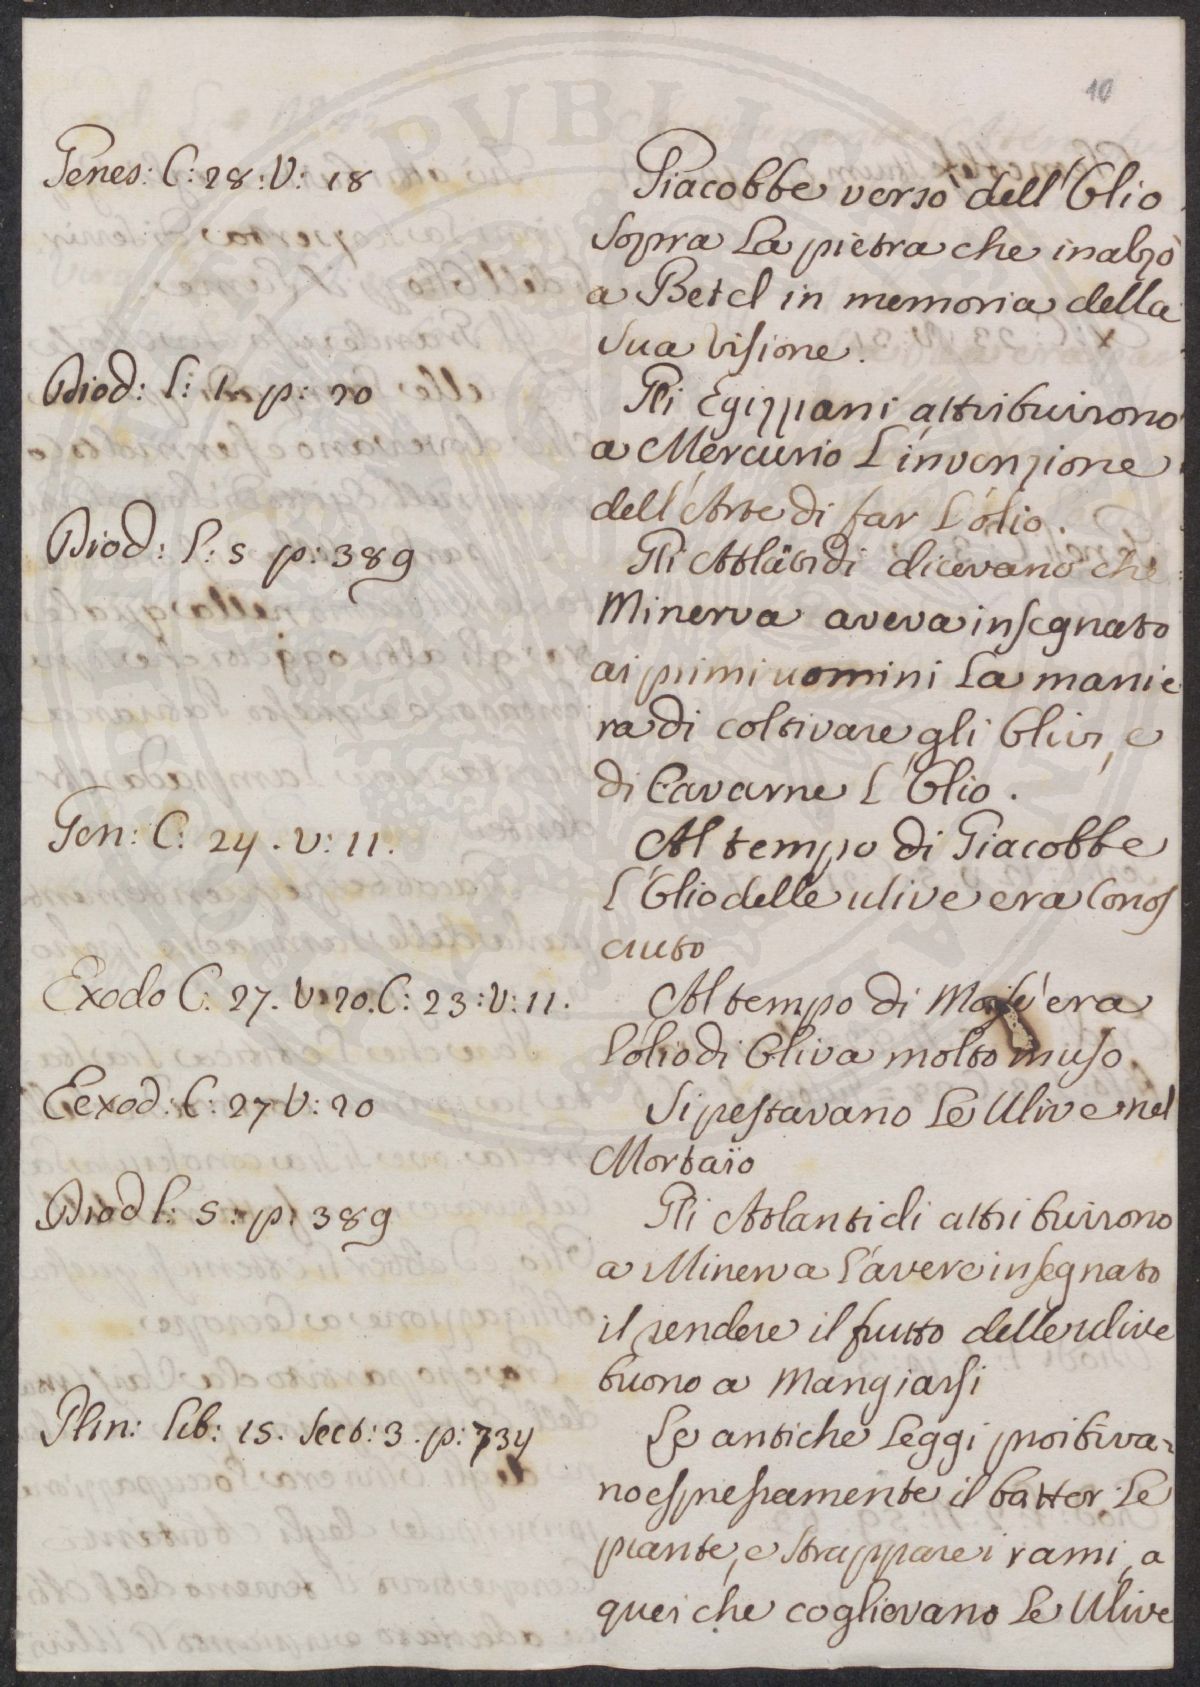 10
Genes: C: 28: V: 18
Giacobbe versò dell'Olio
sopra la pietra che inalzò
a Betel in memoria della
sua visione.
Diod: l: 1. p: 20
Gli Egizziani attribuirono
a Mercurio l'invenzione
dell'Arte di far l'olio.
Diod: l: 5 p: 389
Gli Atlätidi dicevano che
Minerva aveva insegnato
ai primi uomini la manie
ra di coltivare gli Olivi, e
di Cavarne l'Olio.
Gen: C: 24. V: 11.
Al tempo di Giacobbe
l'Olio delle ulive era Conos
ciuto
Exodo C: 27. V: 20. C: 23: V: 11.
Al tempo di Mosè era
l'olio di Oliva molto in uso.
Eexod: C: 27 V: 20
Si pestavano le Ulive nel
Mortaïo
Diod l: 5: p: 389
Gli Atlantidi attribuirono
a Minerva l'avere insegnato
il rendere il frutto delle ulive
buono a Mangiarsi
Plin: lib: 15. Sect: 3. p: 734
Le antiche leggi proibiva-
no espressamente il batter le
piante, e strappare i rami a
quei che coglievano le Ulive